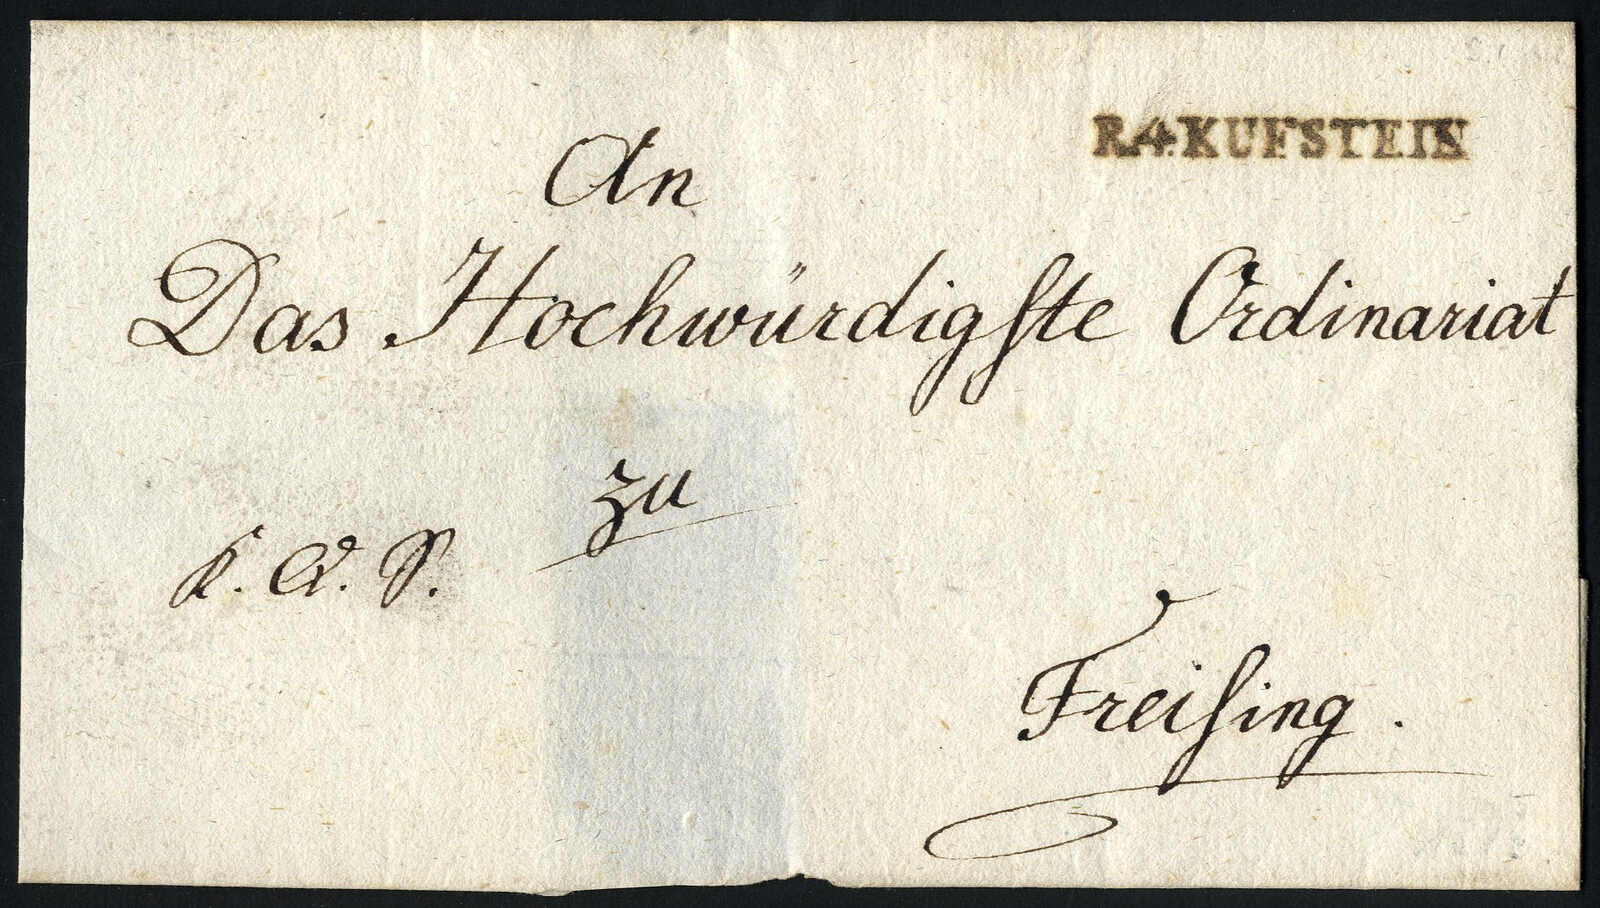 R.4.KUFSTEIN
An
Das Hochwürdigſte Ordinariat
zu
Freiſing.